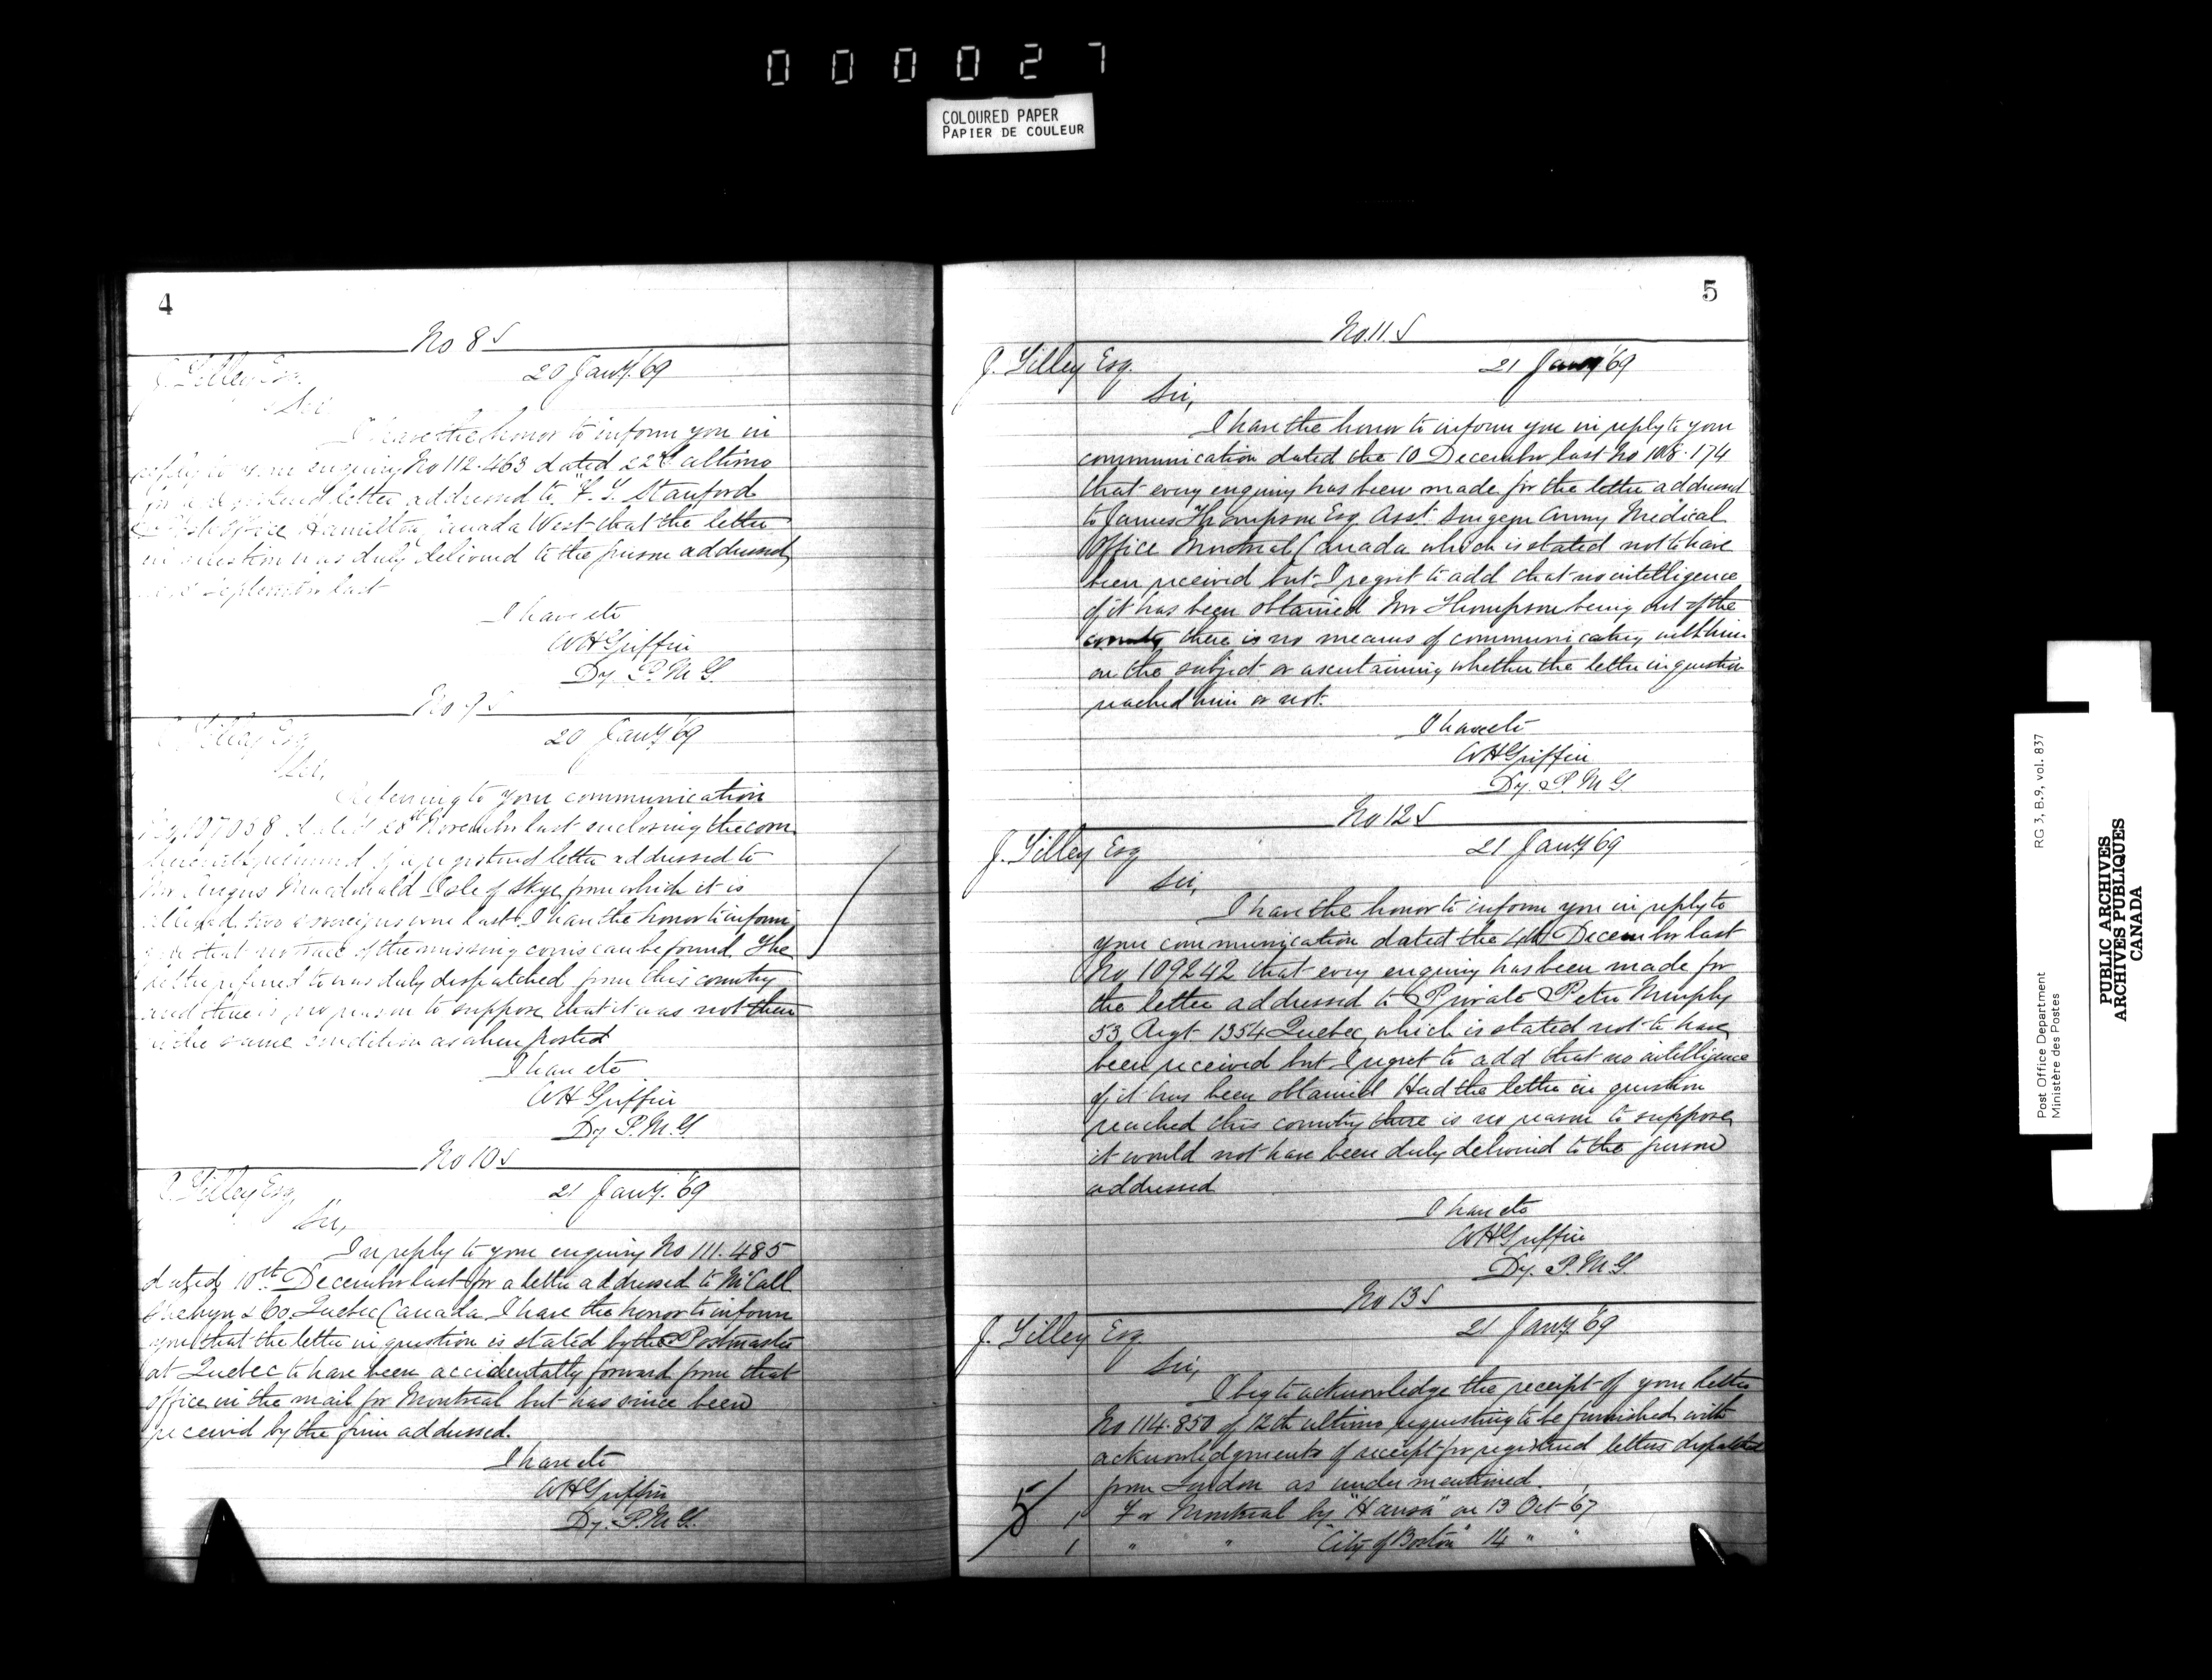 000027
COLOURED PAPER
PAPIER DE COULEUR
4
No 8 S
J. Tilley Esq.
20 Jany. '69
Sir
I have the honor to inform you in
reply to your enquiry No 112.463 dated 22d ultimo
for a registered letter addressed to "F. G. Stanford
Post Office Hamilton Canada West that the letter
in question was duly delivered to the person addressed
September last
I have etc
WH Griffin
Dy. P. M. G.
No 9 S
J. Tilley Esq
20 Jany '69
Sir,
Referring to your communication
No 107038 dated 28th November last enclosing the corn
of a registered letter addressed to
Mr Angus Macdonald Isle of Skye from which it is
alleged two sovereigns were lost I have the honor to inform
you that no trace of the missing coins can be found The
letter referred to was duly despatched from this country
and there is no reason to suppose that it was not then
in the same condition as when posted
I have etc
WH Griffin
Dy P. M. G.
No 10 S
J. Tilley Esq,
21 Jany. '69
Sir,
In reply to your enquiry No 111.485
dated 10th December last for a letter addressed to McCall
Shehyn & Co. Quebec Canada I have the honor to inform
you that the letter in question is stated by the Postmaster
at Quebec to have been accidentally forward from that
office in the mail for Montreal but has since been
received by the firm addressed.
I have etc
WH Griffin
Dy. P. M. G.
5
No. 11 S
J. Tilley Esq.
21 Jany '69
Sir,
I have the honor to inform you in reply to your
communication dated the 10 December last No 108.174
that every enquiry has been made for the letter addressed
to James Thompson Esq Asst. Surgeon Army Medical
Office Montreal Canada which is stated not to have
been received but I regret to add that no intelligence
of it has been obtained Mr Thompson being out of the
country there is no means of communicating with him
on the subject or ascertaining whether the letter in question
reached him or not.
I have etc
WH Griffin
Dy. P. M. G.
No 12 S
J. Tilley Esq
21 Jany 69
Sir,
I have the honor to inform you in reply to
your communication dated the 4th December last
No 109242 that every enquiry has been made for
the letter addressed to Private Peter Murphy
53 Regt 1354 Quebec, which is stated not to have
been received but I regret to add that no intelligence
of it has been obtained Had the letter in question
reached this country there is no reason to suppose
it would not have been duly delivered to the person
addressed
I have etc
WH Griffin
Dy. P. M. G.
No 13 S
J. Tilley Esq
21 Jany. '69
Sir,
I beg to acknowledge the receipt of your letter
No 114.850 of 12th ultimo requesting to be furnished with
acknowledgments of receipt for registered letters despatched
from London as under mentioned.
5
1 For Montreal by "Hansa" on 13 Oct 67
1 " " "City of Boston" 14 " "
Post Office Department
Ministère des Postes
RG 3, B.9, vol. 837
PUBLIC ARCHIVES
ARCHIVES PUBLIQUES
CANADA